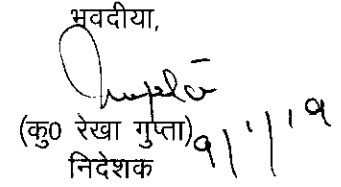 भवदीया,
(कु0 रेखा गुप्ता)
9/1/19
निदेशक